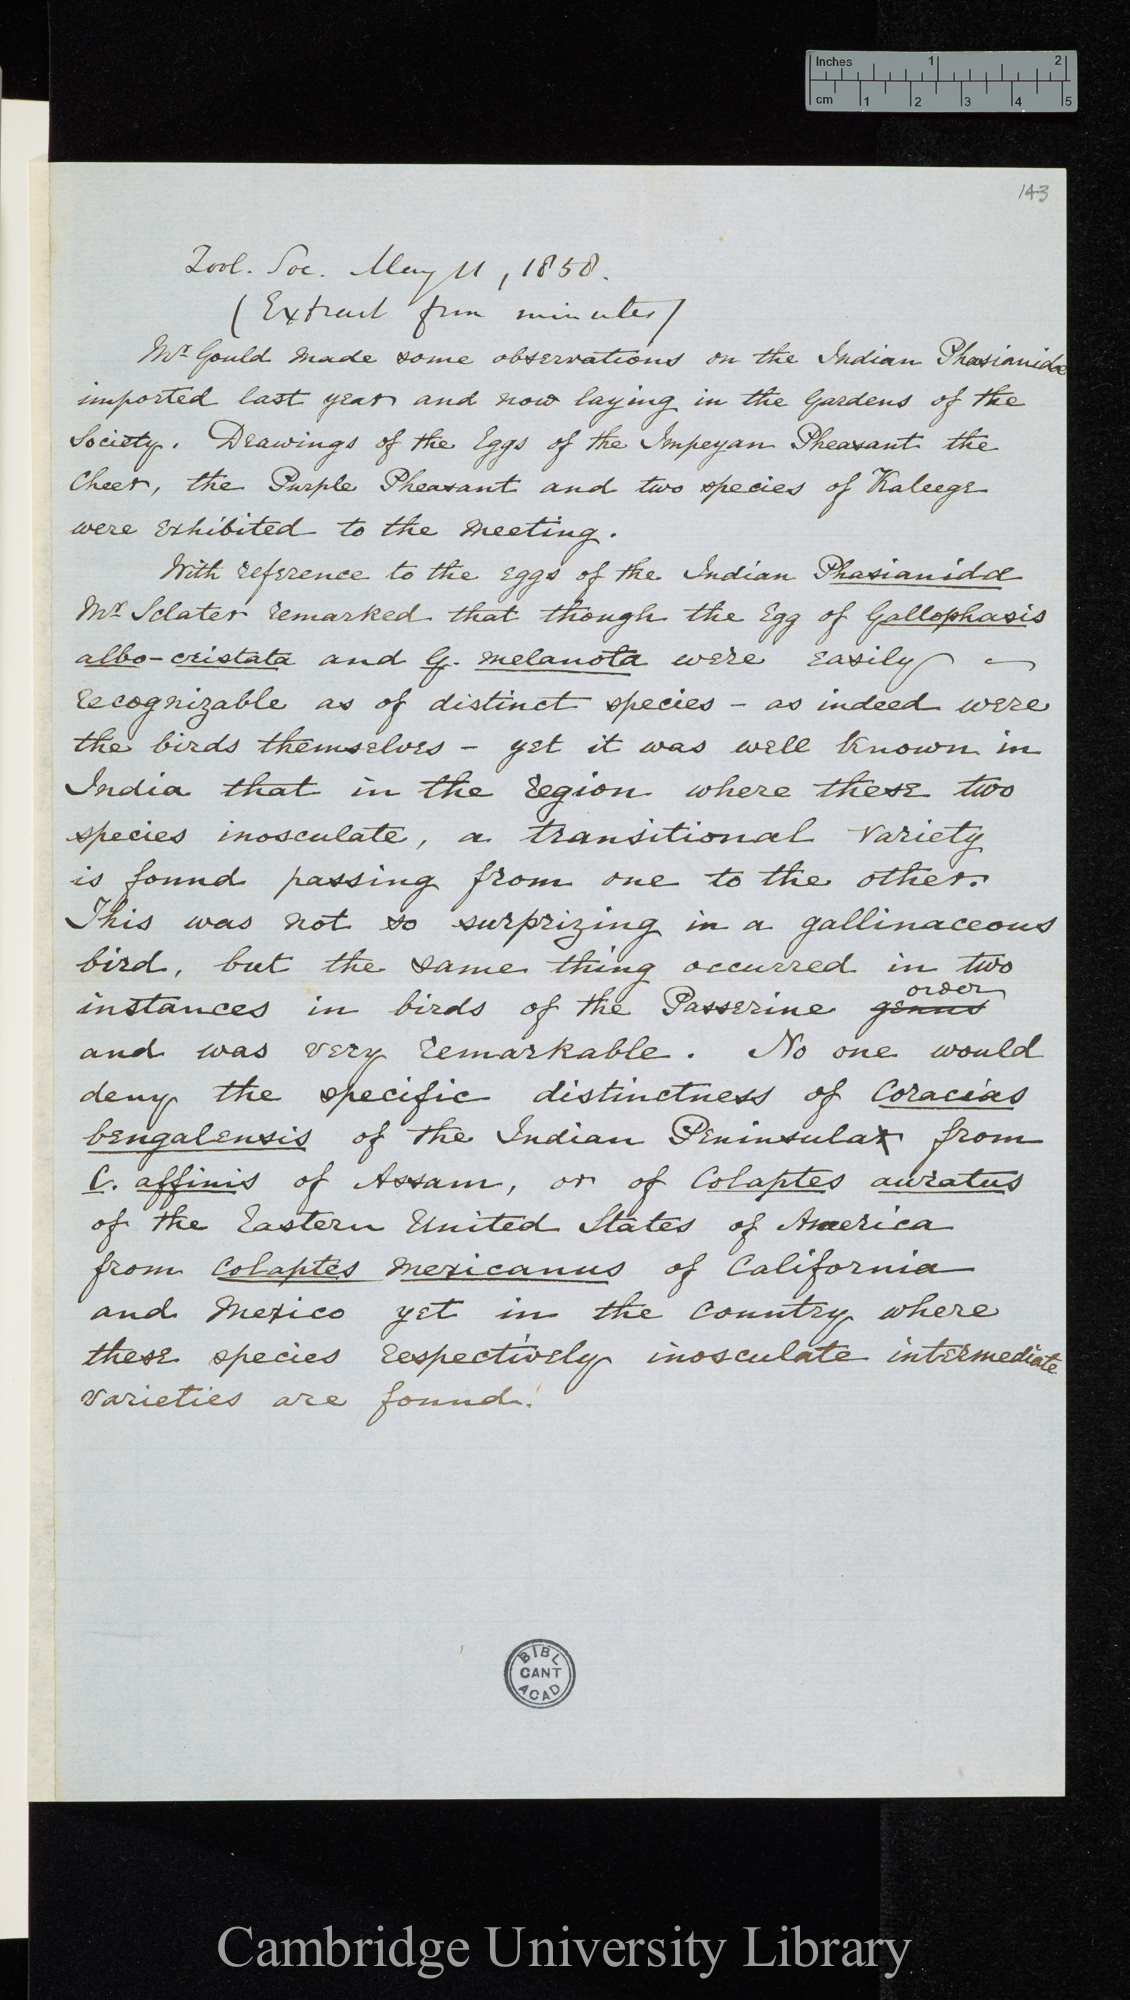 Inches 1 2
cm 1 2 3 4 5
143
Zool. Soc. May 11, 1858.
(Extract from minutes)
Mr Gould made some observations on the Indian Phasianidae
imported last year and now laying in the Gardens of the
Society. Drawings of the Eggs of the Impeyan Pheasant the
Cheer, the Purple Pheasant and two species of Kaleege
were exhibited to the meeting.
With reference to the eggs of the Indian Phasianidæ
Mr Sclater remarked that though the Egg of Gallophasis
albo-cristata and G. melanota were easily
recognizable as of distinct species - as indeed were
the birds themselves - yet it was well known in
India that in the region where these two
species inosculate, a transitional variety
is found passing from one to the other.
This was not so surprizing in a gallinaceous
bird, but the same thing occurred in two
order
instances in birds of the Passerine genus
and was very remarkable. No one would
deny the specific distinctness of Coracias
bengalensis of the Indian Peninsular from
C. affinis of Assam, or of Colaptes auratus
of the Eastern United States of America
from Colaptes Mexicanus of California
and Mexico yet in the country where
these species respectively inosculate intermediate
varieties are found.
BIBL
CANT
ACAD
Cambridge University Library